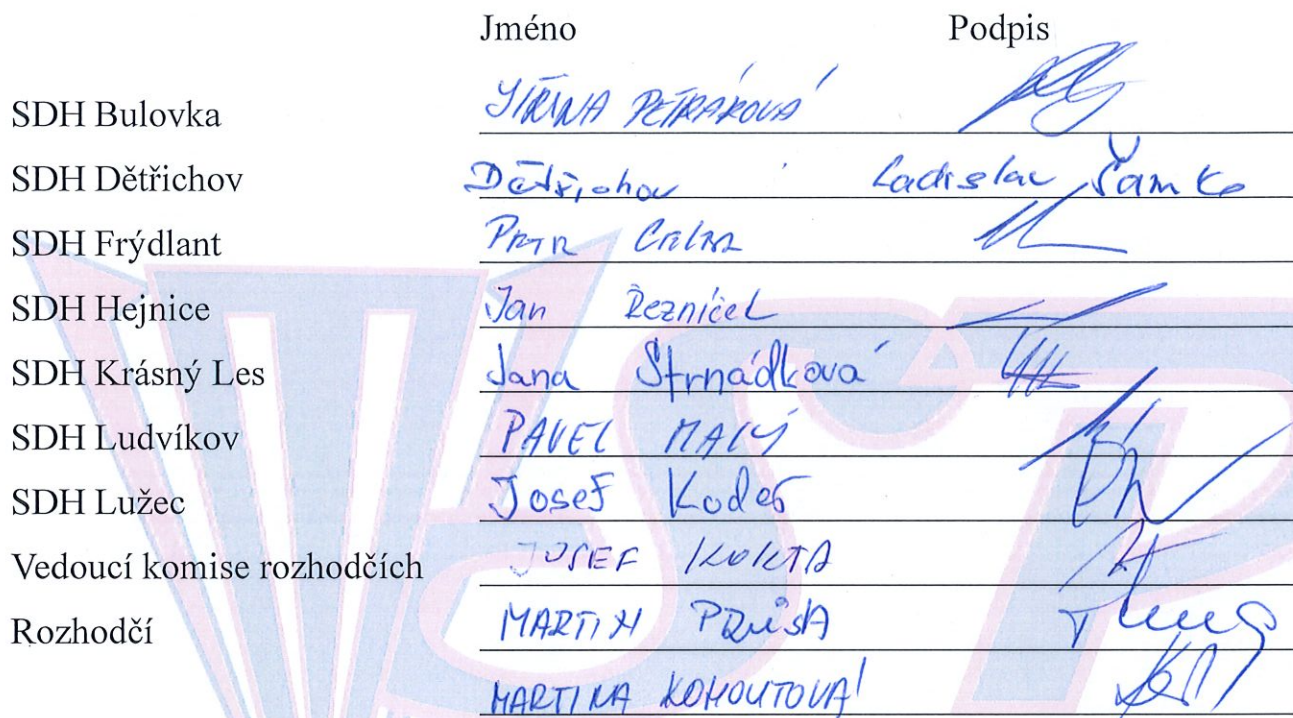 Jméno Podpis
SDH Bulovka JIŘINA PETRÁKOVÁ
SDH Dětřichov Dětřichov Ladislav Šamko
SDH Frýdlant PETR
SDH Hejnice Jan Řezníček
SDH Krásný Les Jana Štrnádková
SDH Ludvíkov PAVEL MALÝ
SDH Lužec Josef Kodeš
Vedoucí komise rozhodčích JOSEF KOKTA
Rozhodčí MARTIN PRŮŠA
MARTINA KOHOUTOVÁ